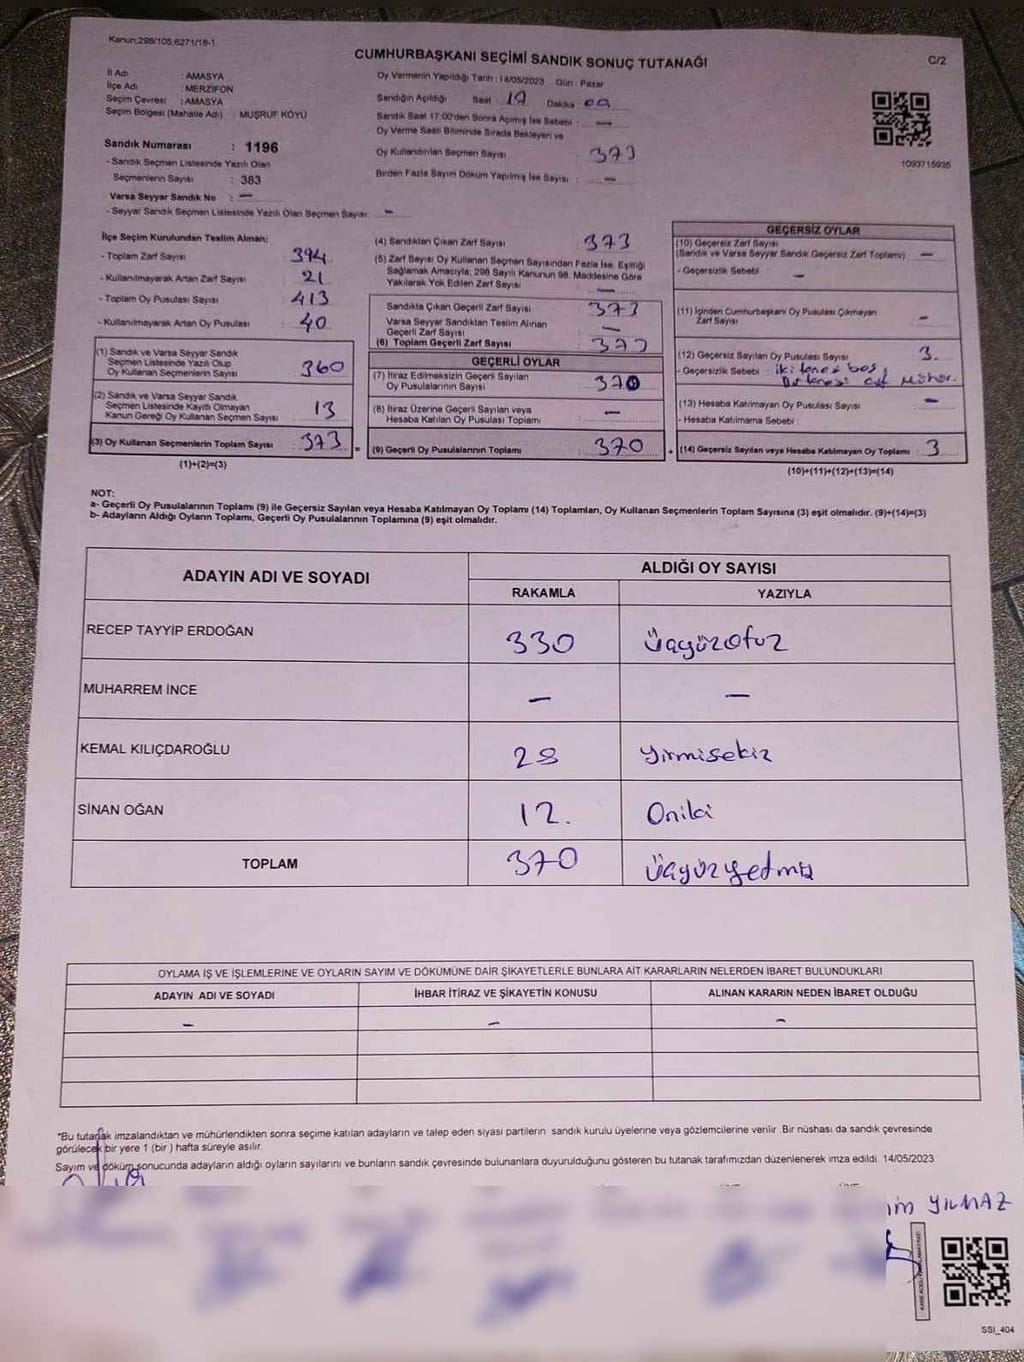 Kanun:298/105,6271/18-1
CUMHURBAŞKANI SEÇİMİ SANDIK SONUÇ TUTANAĞI
C/2
İl Adı : AMASYA
İlçe Adı : MERZİFON
Seçim Çevresi : AMASYA
Seçim Bölgesi (Mahalle Adı) : MUŞRUF KÖYÜ
Oy Vermenin Yapıldığı Tarih : 14/05/2023 Gün : Pazar
Sandığın Açıldığı Saat 17 Dakika : 00
Sandık Saat 17:00'den Sonra Açılmış İse Sebebi : —
Oy Verme Saati Bitiminde Sırada Bekleyen ve
Oy Kullandırılan Seçmen Sayısı 373
Birden Fazla Sayım Döküm Yapılmış İse Sayısı : —
1093715935
Sandık Numarası : 1196
- Sandık Seçmen Listesinde Yazılı Olan
Seçmenlerin Sayısı : 383
Varsa Seyyar Sandık No : —
- Seyyar Sandık Seçmen Listesinde Yazılı Olan Seçmen Sayısı: —
İlçe Seçim Kurulundan Teslim Alınan;
- Toplam Zarf Sayısı : 394
- Kullanılmayarak Artan Zarf Sayısı : 21
- Toplam Oy Pusulası Sayısı : 413
- Kullanılmayarak Artan Oy Pusulası : 40
(1) Sandık ve Varsa Seyyar Sandık
Seçmen Listesinde Yazılı Olup
Oy Kullanan Seçmenlerin Sayısı : 360
(2) Sandık ve Varsa Seyyar Sandık
Seçmen Listesinde Kayıtlı Olmayan
Kanun Gereği Oy Kullanan Seçmen Sayısı : 13
(3) Oy Kullanan Seçmenlerin Toplam Sayısı : 373
(1)+(2)=(3)
(4) Sandıktan Çıkan Zarf Sayısı : 373
(5) Zarf Sayısı Oy Kullanan Seçmen Sayısından Fazla İse, Eşitliği
Sağlamak Amacıyla; 298 Sayılı Kanunun 98. Maddesine Göre
Yakılarak Yok Edilen Zarf Sayısı : —
Sandıkta Çıkan Geçerli Zarf Sayısı : 373
Varsa Seyyar Sandıktan Teslim Alınan
Geçerli Zarf Sayısı : —
(6) Toplam Geçerli Zarf Sayısı : 373
GEÇERLİ OYLAR
(7) İtiraz Edilmeksizin Geçerli Sayılan
Oy Pusulalarının Sayısı : 370
(8) İtiraz Üzerine Geçerli Sayılan veya
Hesaba Katılan Oy Pusulası Toplamı : —
(9) Geçerli Oy Pusulalarının Toplamı : 370
GEÇERSİZ OYLAR
(10) Geçersiz Zarf Sayısı
(Sandık ve Varsa Seyyar Sandık Geçersiz Zarf Toplamı) : —
- Geçersizlik Sebebi : —
(11) İçinden Cumhurbaşkanı Oy Pusulası Çıkmayan
Zarf Sayısı : —
(12) Geçersiz Sayılan Oy Pusulası Sayısı : 3.
- Geçersizlik Sebebi : iki tanesi boş,
Bir tanesi çift mühür.
(13) Hesaba Katılmayan Oy Pusulası Sayısı : —
- Hesaba Katılmama Sebebi :
(14) Geçersiz Sayılan veya Hesaba Katılmayan Oy Toplamı : 3
(10)+(11)+(12)+(13)=(14)
NOT:
a- Geçerli Oy Pusulalarının Toplamı (9) ile Geçersiz Sayılan veya Hesaba Katılmayan Oy Toplamı (14) Toplamları, Oy Kullanan Seçmenlerin Toplam Sayısına (3) eşit olmalıdır. (9)+(14)=(3)
b- Adayların Aldığı Oyların Toplamı, Geçerli Oy Pusulalarının Toplamına (9) eşit olmalıdır.
ADAYIN ADI VE SOYADI
ALDIĞI OY SAYISI
RAKAMLA YAZIYLA
RECEP TAYYİP ERDOĞAN 330 Üçyüzotuz
MUHARREM İNCE — —
KEMAL KILIÇDAROĞLU 28 yirmisekiz
SİNAN OĞAN 12. Oniki
TOPLAM 370 Üçyüzyetmiş
OYLAMA İŞ VE İŞLEMLERİNE VE OYLARIN SAYIM VE DÖKÜMÜNE DAİR ŞİKAYETLERLE BUNLARA AİT KARARLARIN NELERDEN İBARET BULUNDUKLARI
ADAYIN ADI VE SOYADI İHBAR İTİRAZ VE ŞİKAYETİN KONUSU ALINAN KARARIN NEDEN İBARET OLDUĞU
— — —
"Bu tutanak imzalandıktan ve mühürlendikten sonra seçime katılan adayların ve talep eden siyasi partilerin sandık kurulu üyelerine veya gözlemcilerine verilir. Bir nüshası da sandık çevresinde
görülecek bir yere 1 (bir ) hafta süreyle asılır.
Sayım ve döküm sonucunda adayların aldığı oyların sayılarını ve bunların sandık çevresinde bulunanlara duyurulduğunu gösteren bu tutanak tarafımızdan düzenlenerek imza edildi. 14/05/2023
YILMAZ
SSI_404